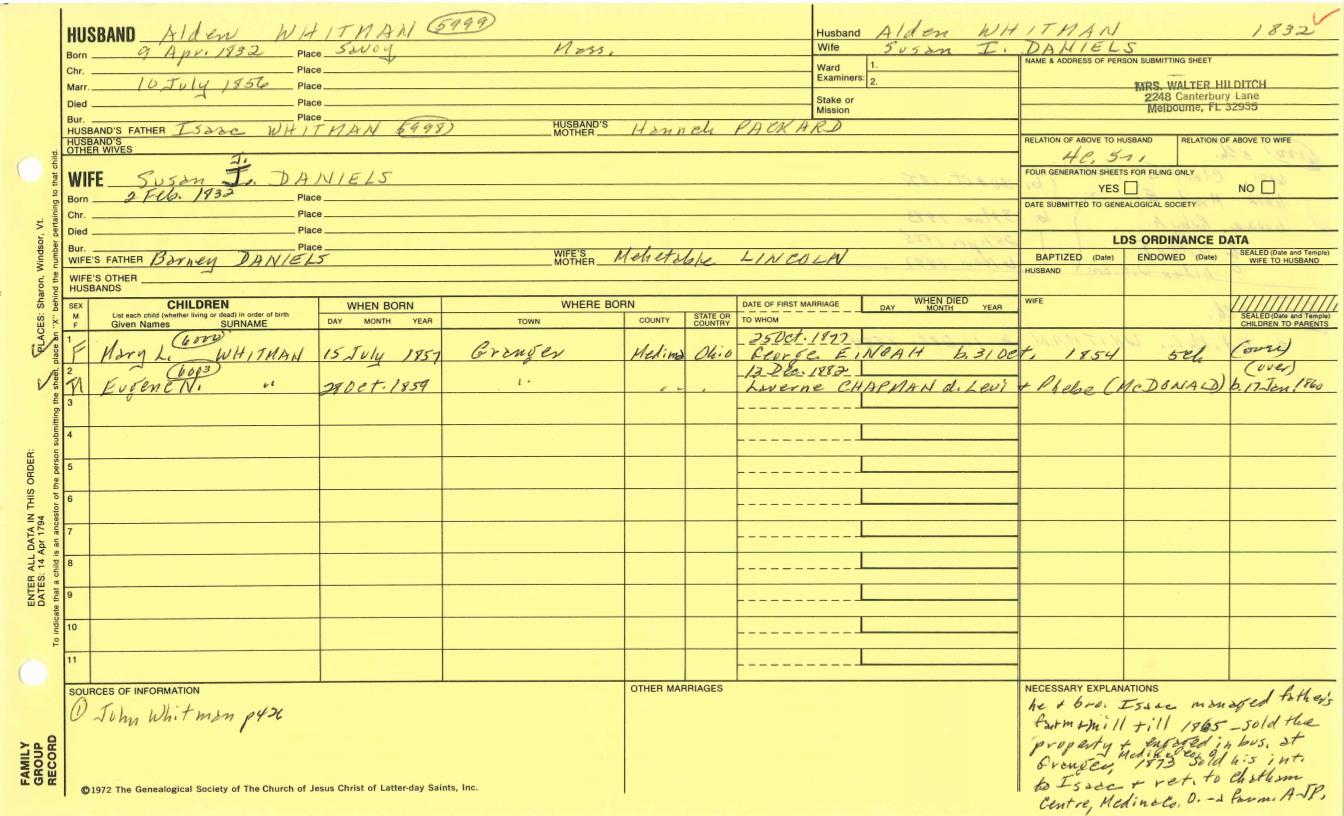 HUSBAND Alden WHITMAN (5999)
Born 9 Apr. 1832 Place Savoy Mass.
Chr. Place
Marr. 10 July 1856 Place
Died Place
Bur. Place
HUSBAND'S FATHER Isaac WHITMAN (5998) HUSBAND'S MOTHER Hannah PACKARD
HUSBAND'S OTHER WIVES
Husband Alden WHITMAN 1832
Wife Susan I. DANIELS
Ward Examiners: 1.
2.
Stake or Mission
NAME & ADDRESS OF PERSON SUBMITTING SHEET
MRS. WALTER HILDITCH
2248 Canterbury Lane
Melbourne, FL 32935
RELATION OF ABOVE TO HUSBAND RELATION OF ABOVE TO WIFE
FOUR GENERATION SHEETS FOR FILING ONLY
YES NO
DATE SUBMITTED TO GENEALOGICAL SOCIETY
I.
WIFE Susan I. DANIELS
Born 2 Feb. 1832 Place
Chr. Place
Died Place
Bur. Place
WIFE'S FATHER Barney DANIELS WIFE'S MOTHER Mehetable LINCOLN
WIFE'S OTHER HUSBANDS
LDS ORDINANCE DATA
BAPTIZED (Date) ENDOWED (Date) SEALED (Date and Temple) WIFE TO HUSBAND
HUSBAND
WIFE
SEALED (Date and Temple) CHILDREN TO PARENTS
SEX M F
CHILDREN
List each child (whether living or dead) in order of birth
Given Names SURNAME
WHEN BORN
DAY MONTH YEAR
WHERE BORN
TOWN COUNTY STATE OR COUNTRY
DATE OF FIRST MARRIAGE
TO WHOM
WHEN DIED
DAY MONTH YEAR
1 (6002) 25 Oct. 1877
F Mary L. WHITMAN 15 July 1857 Granger Medina Ohio George E. NOAH b. 31 Oct. 1854 5ch (over)
2 (6003) 13 Dec. 1882 (over)
M Eugene N. " 29 Oct. 1859 " " " Laverne CHAPMAN d. Levi + Phebe (McDONALD) b. 17 Jan. 1860
3
4
5
6
7
8
9
10
11
SOURCES OF INFORMATION
① John Whitman p426
OTHER MARRIAGES
NECESSARY EXPLANATIONS
he + bro. Isaac managed father's
farm + mill till 1865 - sold the
property + engaged in bus. at
Granger, Medina Co. O. 1873 sold his int.
to Isaac + ret. to Chatham
Centre, Medina Co. O. - a farm. A JP.
©1972 The Genealogical Society of The Church of Jesus Christ of Latter-day Saints, Inc.
FAMILY GROUP RECORD
ENTER ALL DATA IN THIS ORDER:
DATES: 14 Apr 1794
PLACES: Sharon, Windsor, Vt.
To indicate that a child is an ancestor of the person submitting the sheet, place an "X" behind the number pertaining to that child.